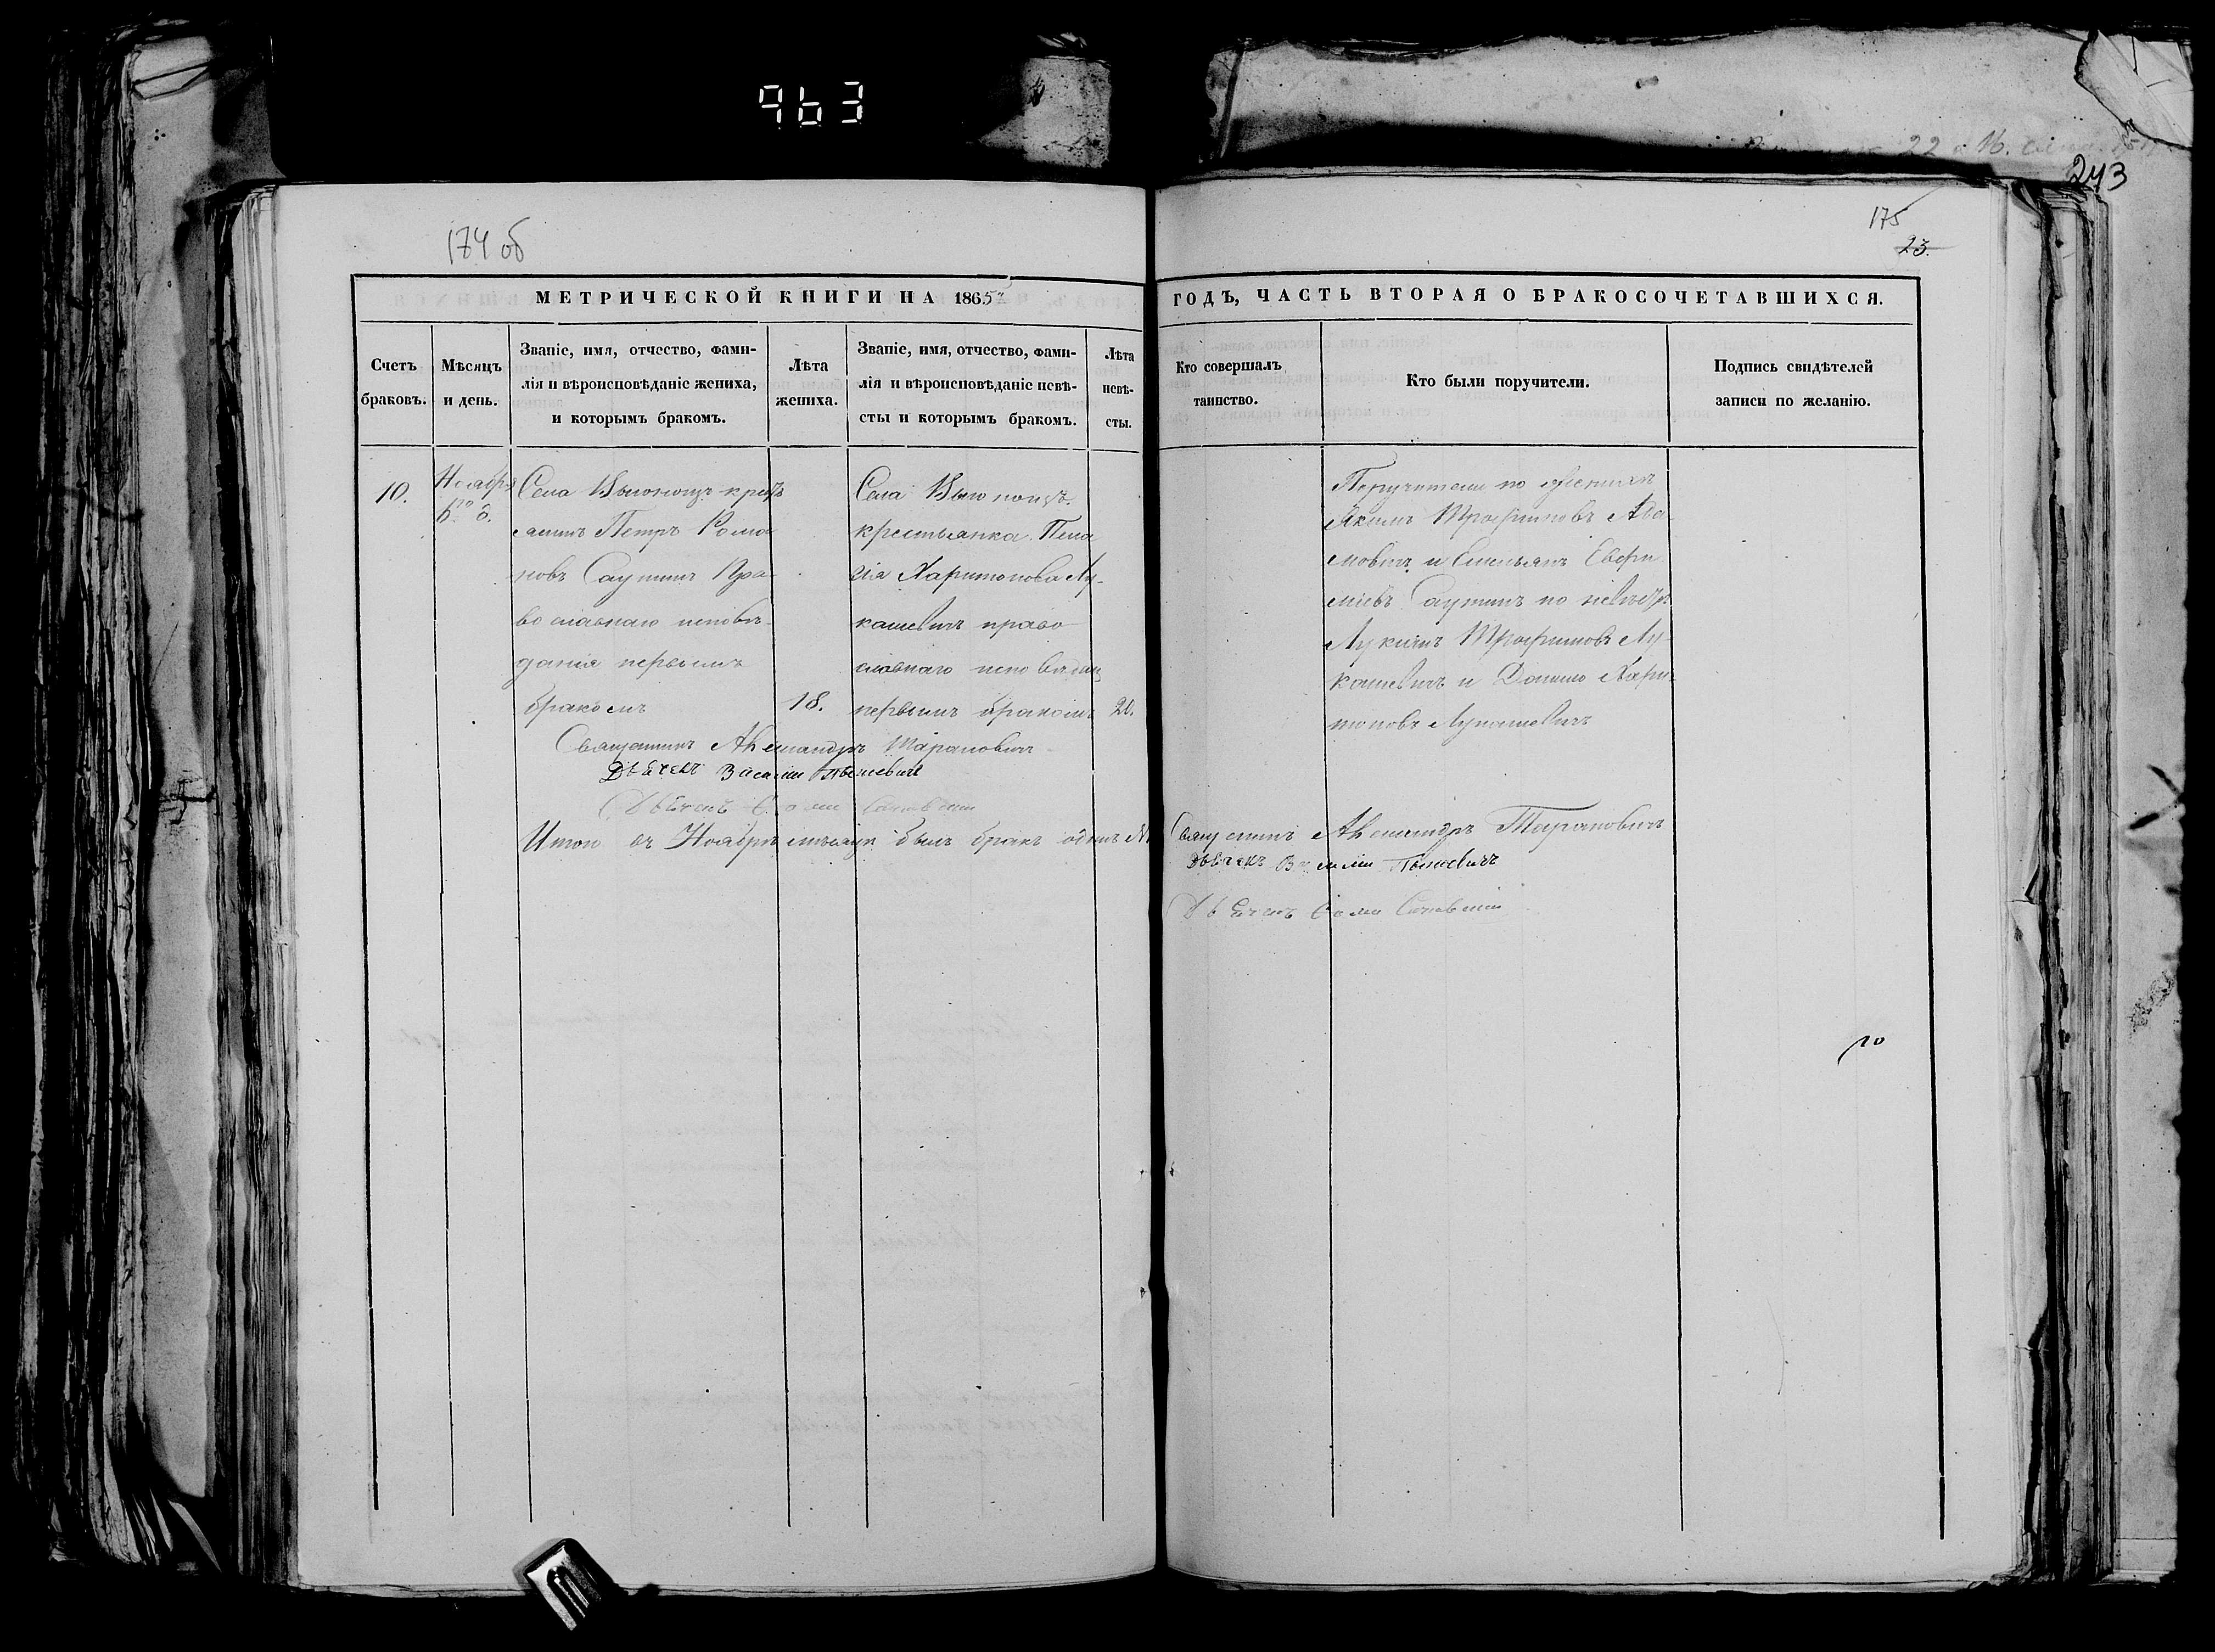 963
22 16.
243
174 об
175
23.
МЕТРИЧЕСКОЙ КНИГИ НА 1865
ГОДЪ, ЧАСТЬ ВТОРАЯ О БРАКОСОЧЕТАВШИХСЯ.
Счетъ браковъ.
Мѣсяцъ и день.
Званіе, имя, отчество, фами-
лія и вѣроисповѣданіе жениха,
и которымъ бракомъ.
Лѣта
жениха.
Званіе, имя, отчество, фами-
лія и вѣроисповѣданіе невѣ-
сты и которымъ бракомъ.
Лѣта
невѣ-
сты.
Кто совершалъ
таинство.
Кто были поручители.
Подпись свидѣтелей
записи по желанію.
10.
Ноября
Села кресть
янинъ Петръ Рома
новъ Саутинъ Пра-
вославнаго исповѣ-
данія первымъ
бракомъ
18.
Села
крестьянка Пела
гія Харитонова Лу-
кашевичъ право
славнаго исповѣдан
первымъ бракомъ
20.
Поручители по женихѣ
Якимъ Трофимовъ Ада
мовичъ и Емельянъ Евфи
міевъ Саутинъ по невѣстѣ
Лукіянъ Трофимовъ Лу-
кашевичъ и Данило Хари
тоновъ Лукашевичъ
Священникъ Александръ Тарановичъ
Дьячекъ Василій
Дьячекъ
Итого въ Ноябрѣ мѣсяцѣ былъ бракъ одинъ
Священникъ Александръ Тарановичъ
Дьячекъ Василій
Дьячекъ
10